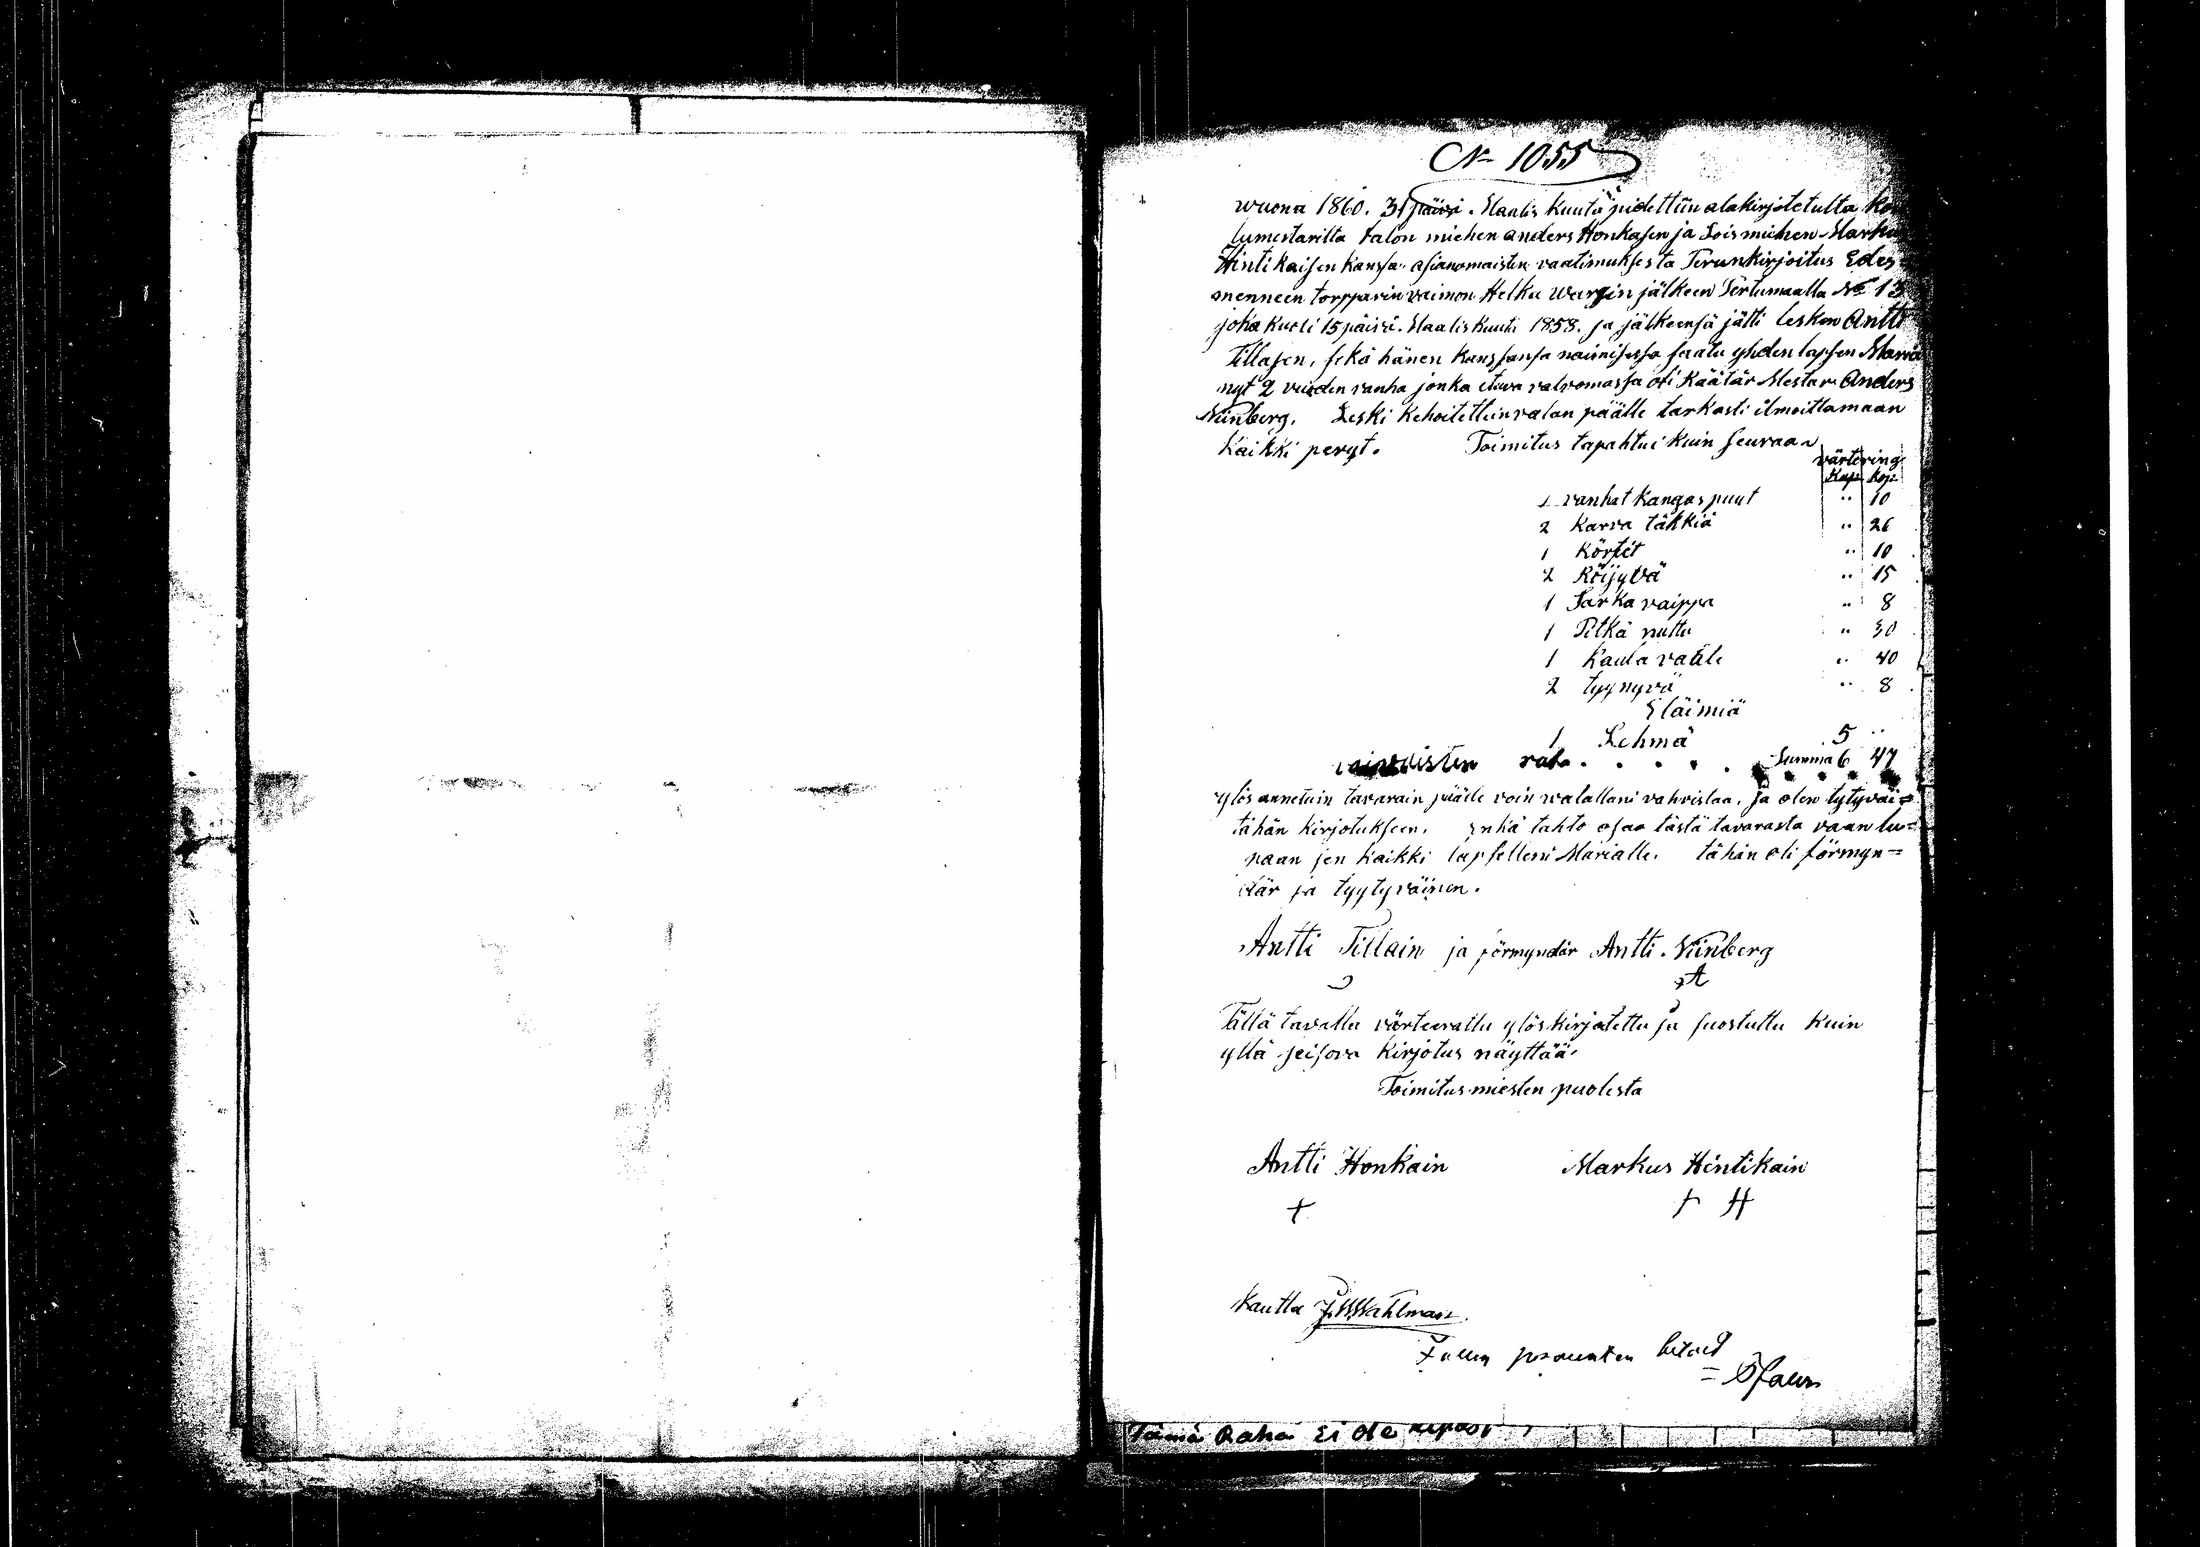 N 1055
wuona 1860. 31 päivä. Maalis Kuuta pidettiin alakirjotetulta
lumestarilta talon miehen anders Honkasen ja Lois miehen Markus
Hintikaisen Kanssa asianomaisten vaatimuksesta Perunkirjoitus Edes
menneen torpparin vaimon Helka Wargin jälkeen Pertumaalla No 13
joka Kuoli 15 päivä. Maalis Kuuta 1858. ja jälkeensä jätti lesken Antti
Tillasen, sekä hänen Kanssansa naimisessa saatu yhden lapsen Maria
nyt 2 vuoden vanha jonka etuva valvomassa oli Käätär Mestar Anders
Niinberg. Leski Kehoitettiin valan päälle tarkasti ilmoittamaan
Kaikki peryt. Toimitus tapahtui Kuin seuraan
värtering
Rup Kop
1 vanhat Kangas puut .. 10
2 Karva täkkiä .. 26
1 Körtit .. 10
2 Röijyvä .. 15
1 Sarka vaippa .. 8
1 Pitkä nuttu .. 30
1 Kaula vaate .. 40
2 tyynyvä .. 8
Eläimiä
1 Lehmä 5 ..
vaivaisten raha . . . . . Summa 6 47
ylös annetuin tavarain päälle voin walallani vahvistaa, ja olen tytyväi=
tähän kirjotukseen. Enkä tahto osaa tästä tavarasta vaan lu=
paan sen kaikki lapselleni Marialle. tähän oli förmyn=
där ja tyytyväinen.
Antti Tillain ja förmyndär Antti Niinberg
A
Tällä tavalla värteerattu ylöskirjotettu ja suostuttu Kuin
yllä seisova Kirjotus näyttää.
Toimitus miesten puolesta
Antti Honkain Markus Hintikain
+ + H
Kautta J. W. Wahlman.
Fattig procenten betald
Tämä Raha Ei ole